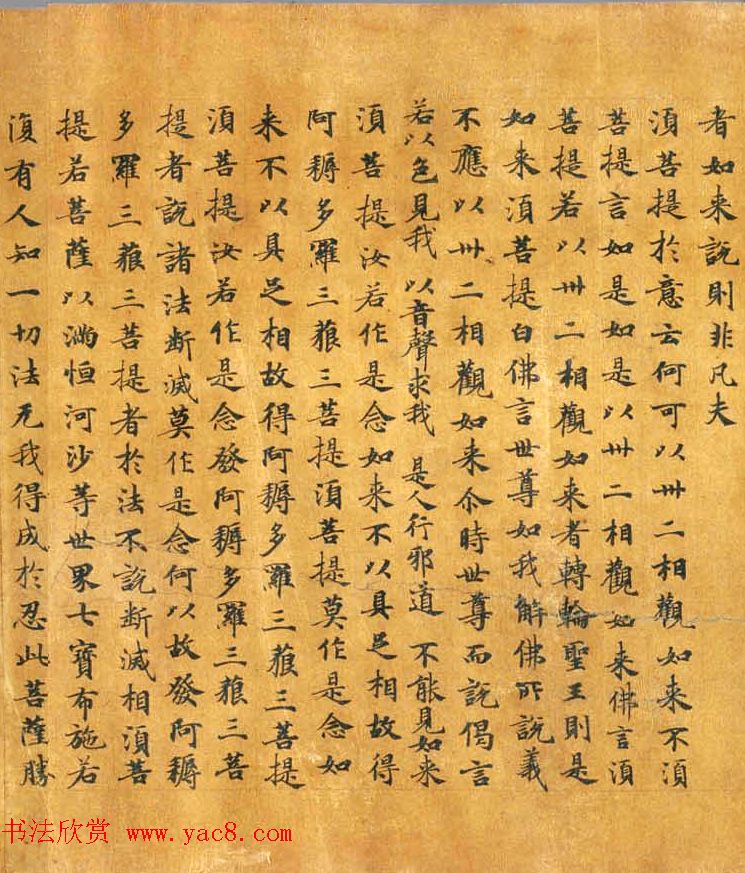 者如来說則非凡夫
湏菩提於意云何可以卅二相觀如来不湏
菩提言如是如是以卅二相觀如来佛言湏
菩提若以卅二相觀如来者轉輪聖王則是
如来湏菩提白佛言世尊如我解佛所說義
不應以卅二相觀如来尒時世尊而說偈言
若以色見我 以音聲求我 是人行邪道 不能見如来
湏菩提汝若作是念如来不以具足相故得
阿耨多羅三藐三菩提湏菩提莫作是念如
来不以具足相故得阿耨多羅三藐三菩提
湏菩提汝若作是念發阿耨多羅三藐三菩
提者說諸法断滅莫作是念何以故發阿耨
多羅三藐三菩提者於法不說断滅相湏菩
提若菩薩以滿恒河沙等世界七寶布施若
復有人知一切法无我得成於忍此菩薩勝
书法欣赏 www.yac8.com